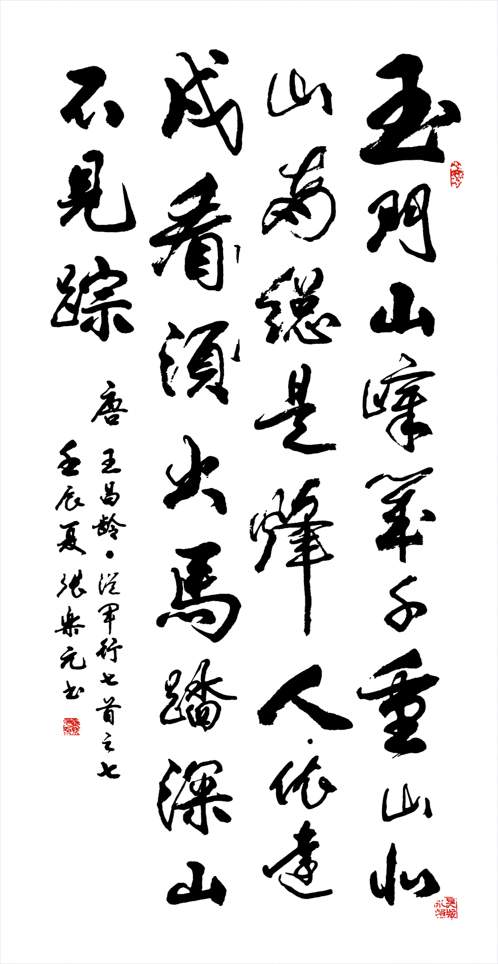 玉門山嶂幾千重山北
山南總是烽人·依遠
戍看須火馬踏深山
不見踪
唐 王昌齡·從軍行七首之七
壬辰夏張樂元书